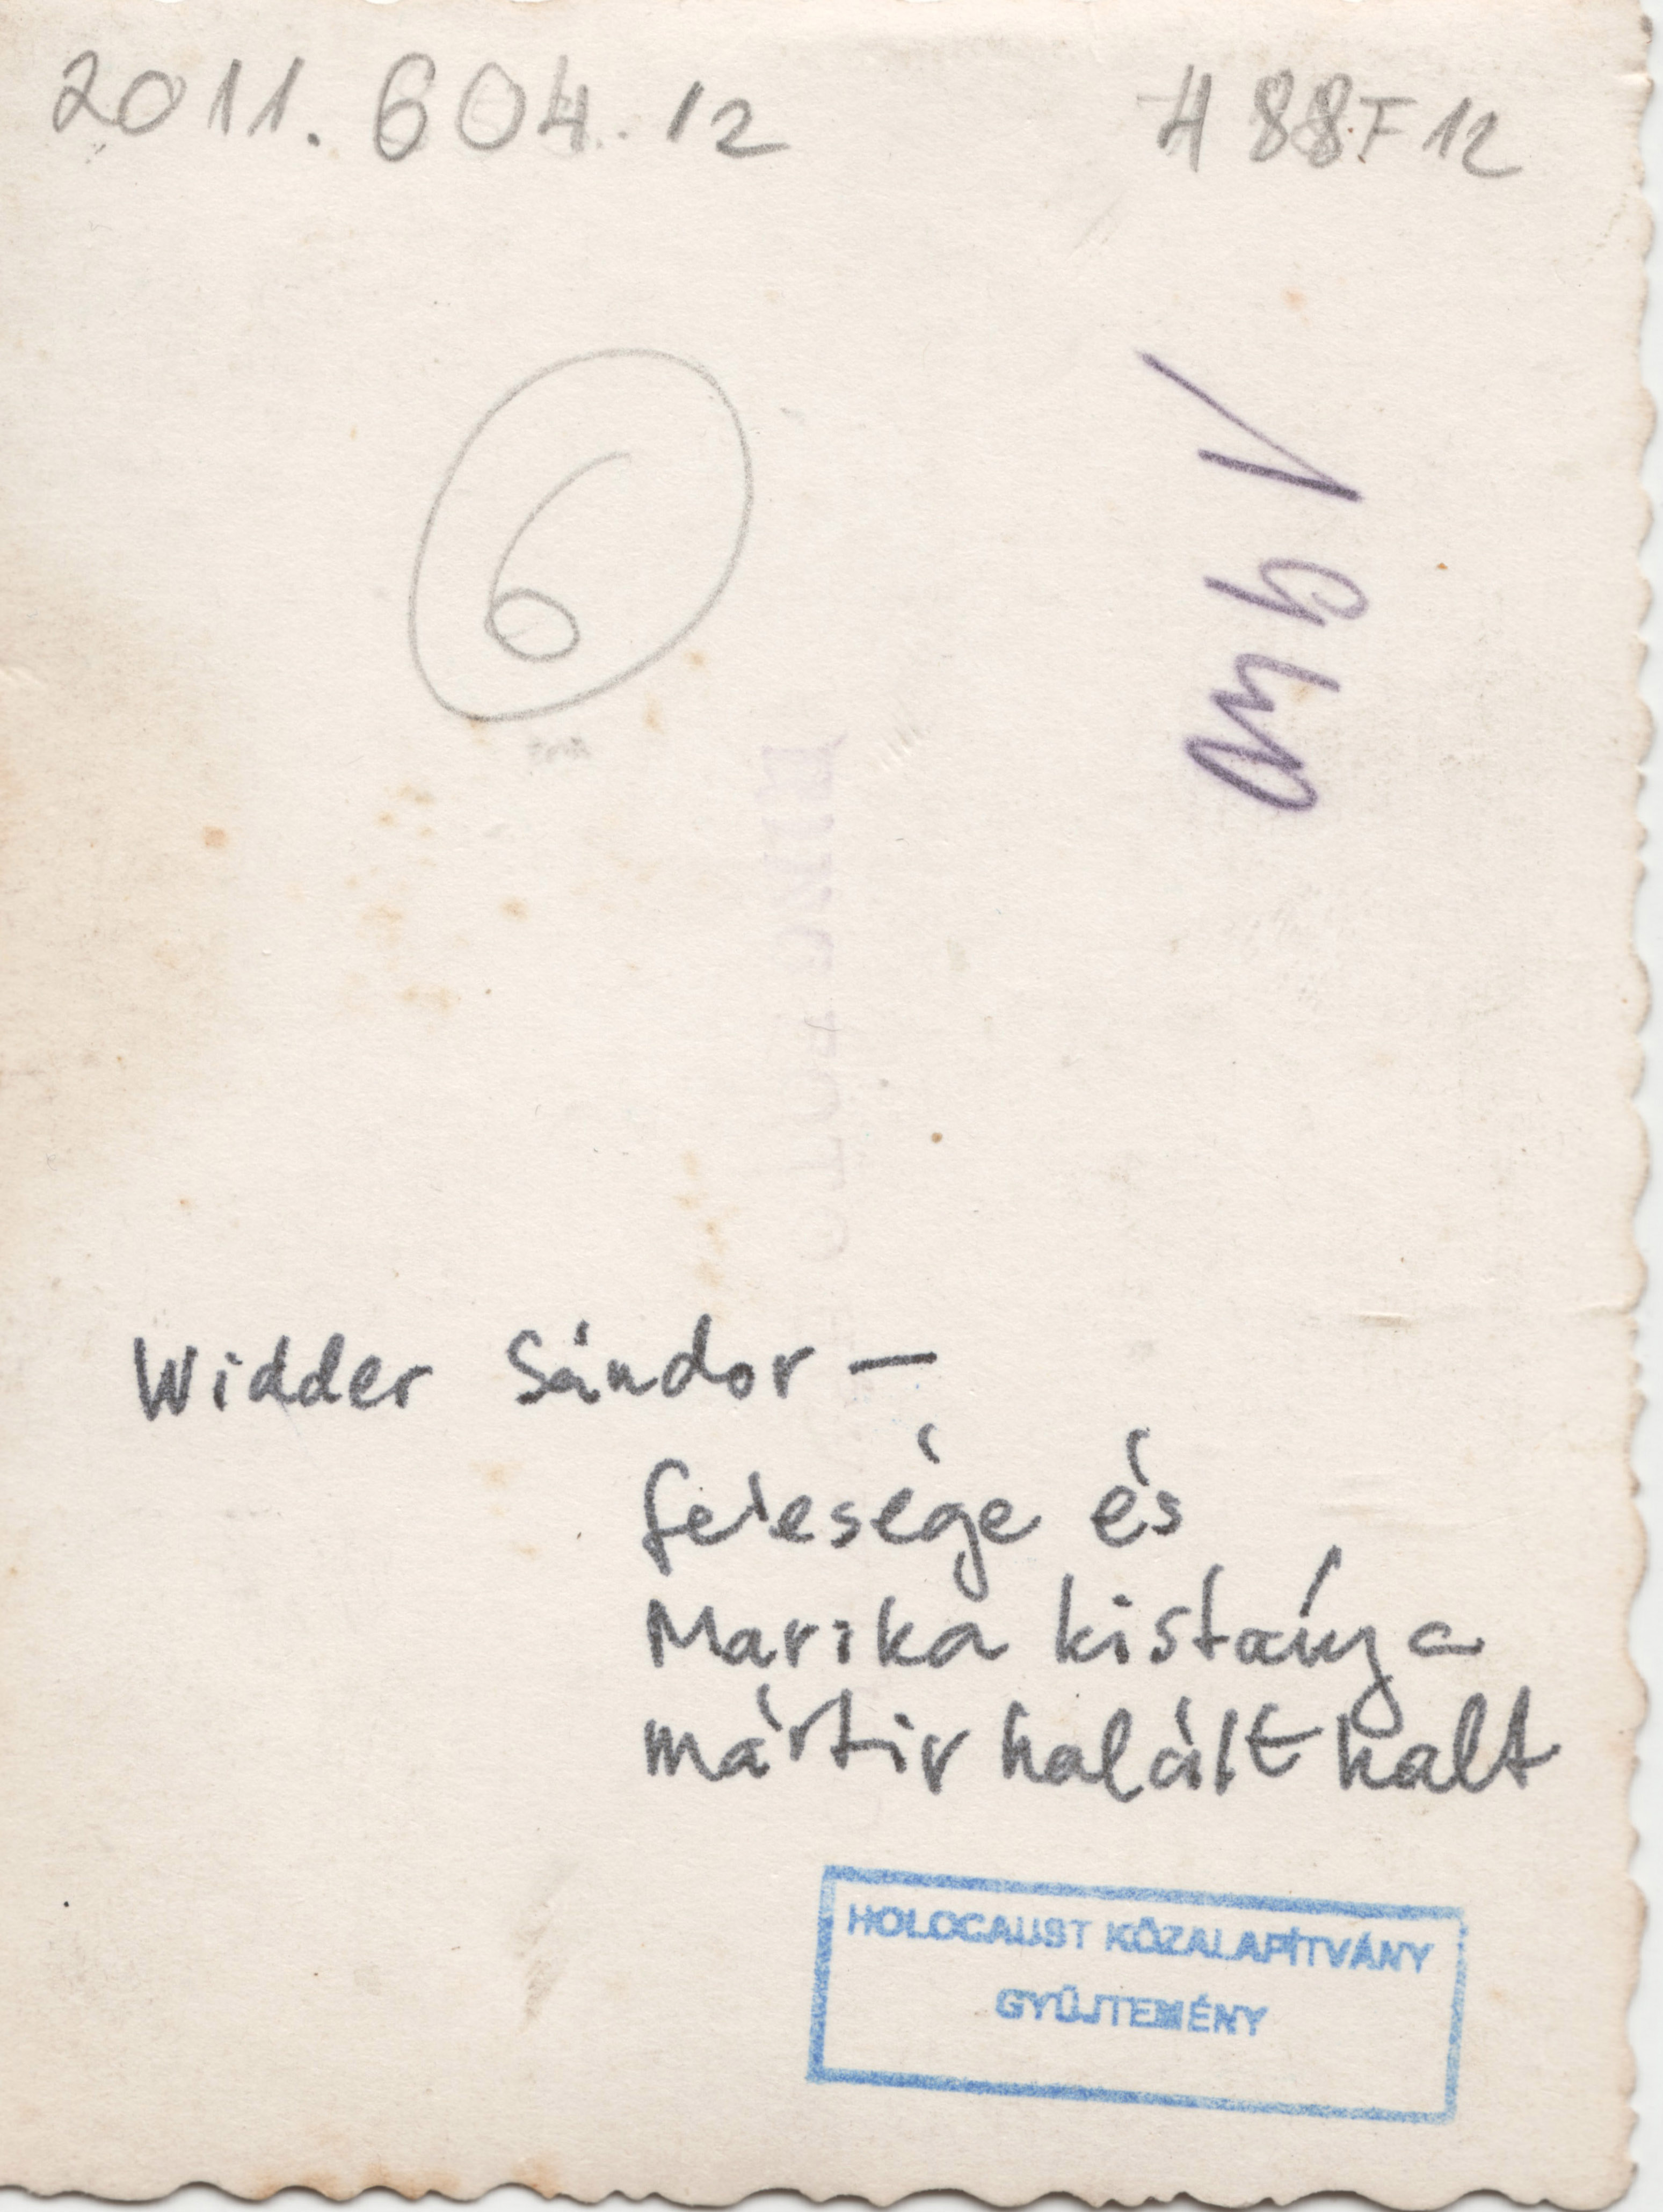 2011.604.12 H 88F12
6
Widder Sándor –
felesége és
Marika kislánya
mártir halált halt
HOLOCAUST KÖZALAPÍTVÁNY
GYŰJTEMÉNY